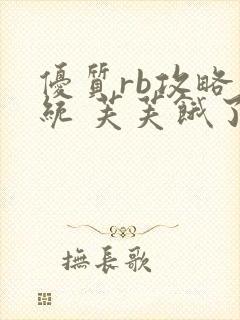 優質rb攻略
統 芙芙餓了
撫長歌